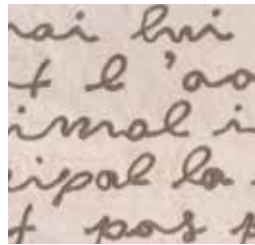 ai lui
t l'ao
imal i
ipal la
t pas p